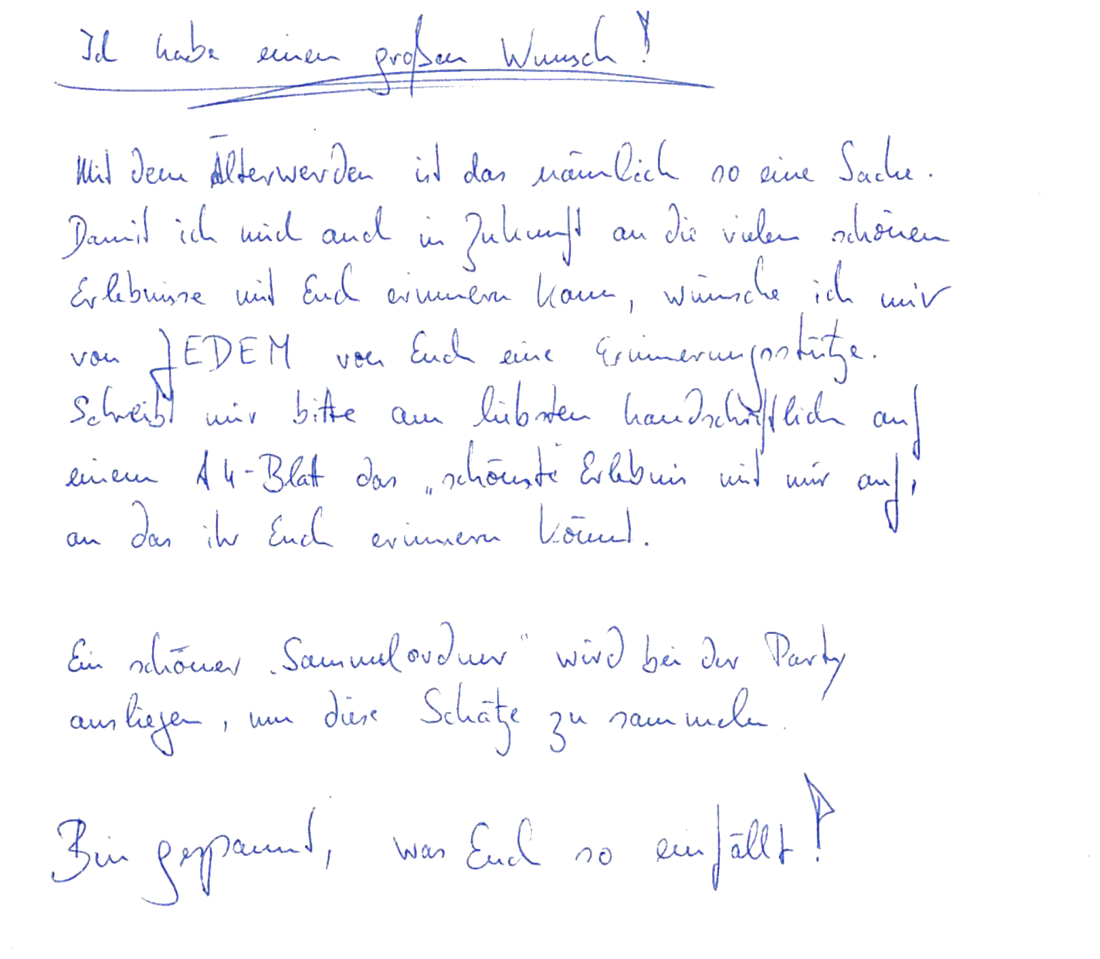 Ich habe einen großen Wunsch!
Mit dem Älterwerden ist das nämlich so eine Sache.
Damit ich mich auch in Zukunft an die vielen schönen
Erlebnisse mit Euch erinnern kann, wünsche ich mir
von JEDEM von Euch eine Erinnerungsstütze.
Schreibt mir bitte am liebsten handschriftlich auf
einem A4-Blatt das „schönste Erlebnis mit mir auf,
an das ihr Euch erinnern könnt.
Ein schöner „Sammelordner“ wird bei der Party
ausliegen, um diese Schätze zu sammeln.
Bin gespannt, was Euch so einfällt!